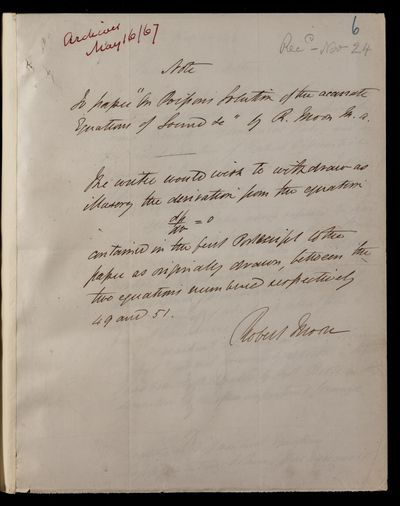 6
Archives
May 16/67
Rec^d - Nov 24
Note
To paper "On Poisson's Solution of the accurate
Equations of Sound &c" by R. Moon M.A.
The writer would wish to withdraw as
illusory the derivation from the equation
dp/dv = 0
contained in the first Postscript to the
paper as originally drawn, between the
two equations numbered respectively
49 and 51.
Robert Moon